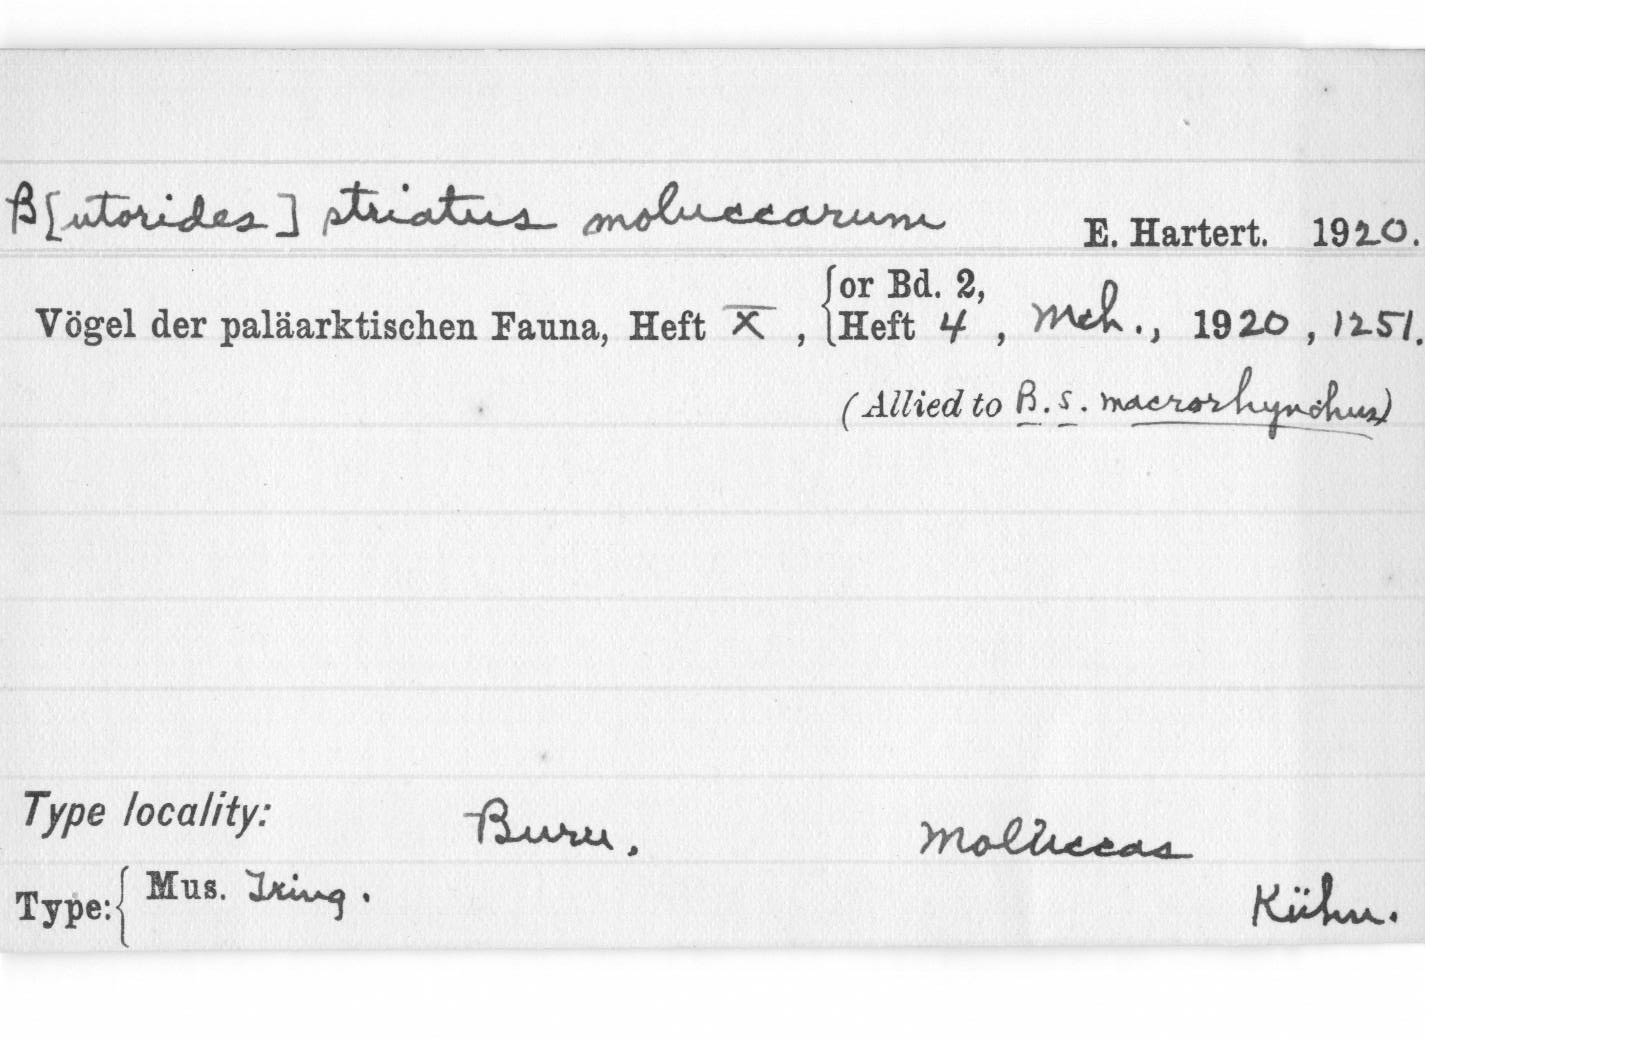 B[utorides] striatus moluccarum E. Hartert. 1920.
Vögel der paläarktischen Fauna, Heft X, {or Bd. 2,
Heft 4, Mch., 1920, 1251.
(Allied to B. s. macrorhynchus)
Type locality: Buru. Moluccas
Type: { Mus. Tring.
Kühn.